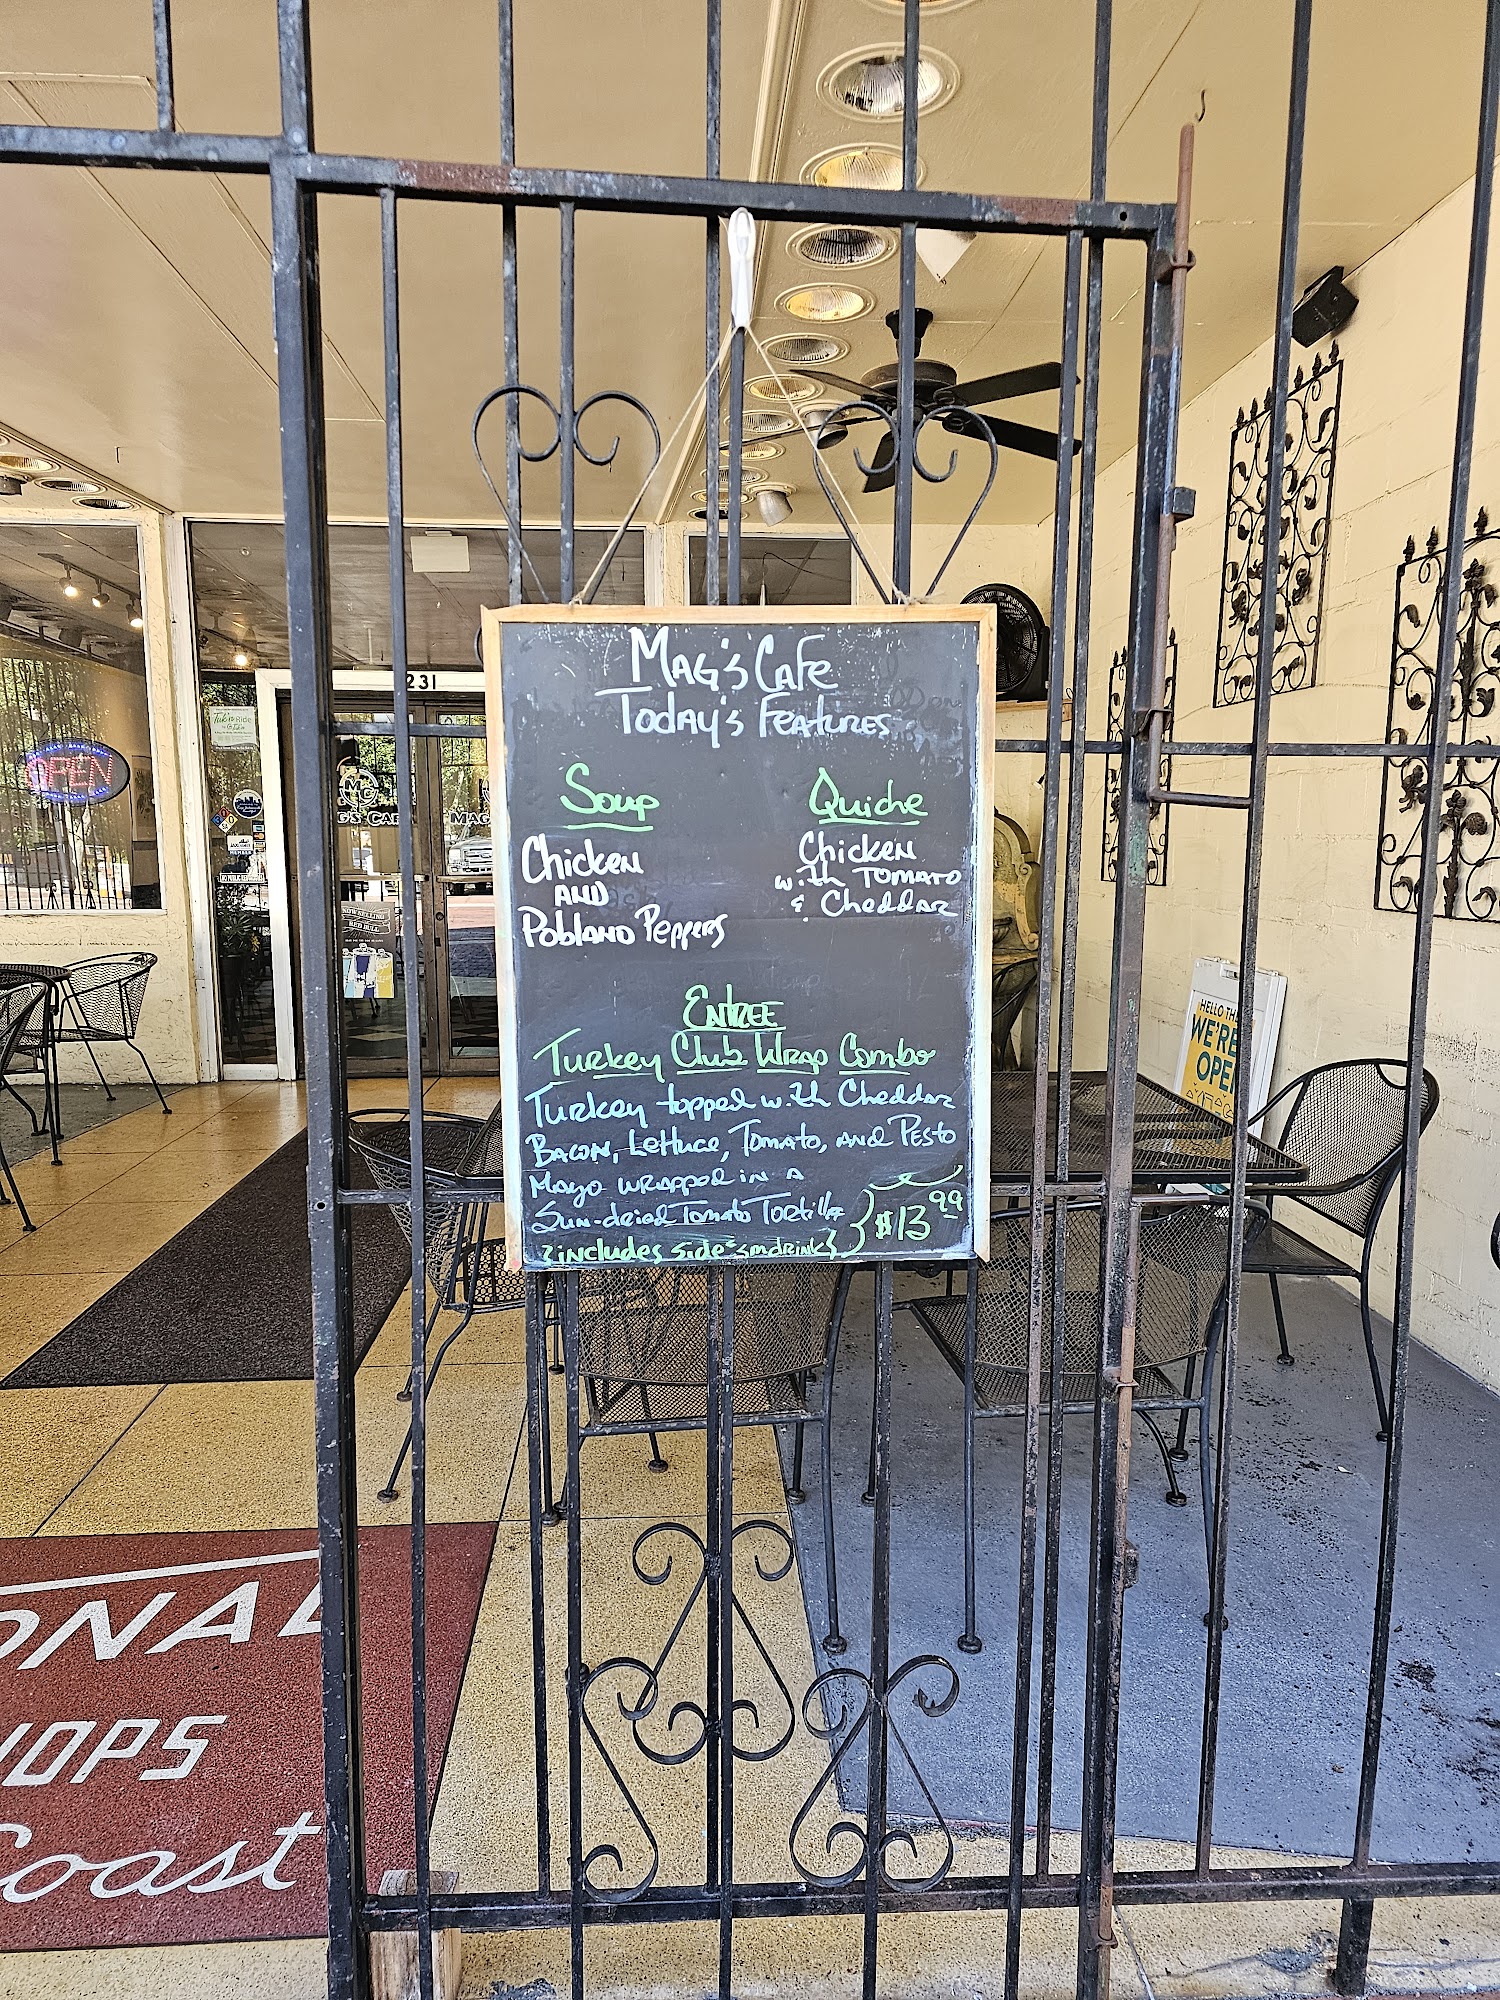 Mag's Cafe
Today's Features
Soup
Chicken
and
Poblano Peppers
Quiche
Chicken
with Tomato
& Cheddar
Entree
Turkey Club Wrap Combo
Turkey topped with Cheddar
Bacon, Lettuce, Tomato, and Pesto
Mayo wrapped in a
Sun-dried Tomato Tortilla
{includes side & sm drink}
$13.99
231
OPEN
MG
G'S CAF
MAG
HELLO TH
WE'RE
OPE
ONAL
HOPS
Coast